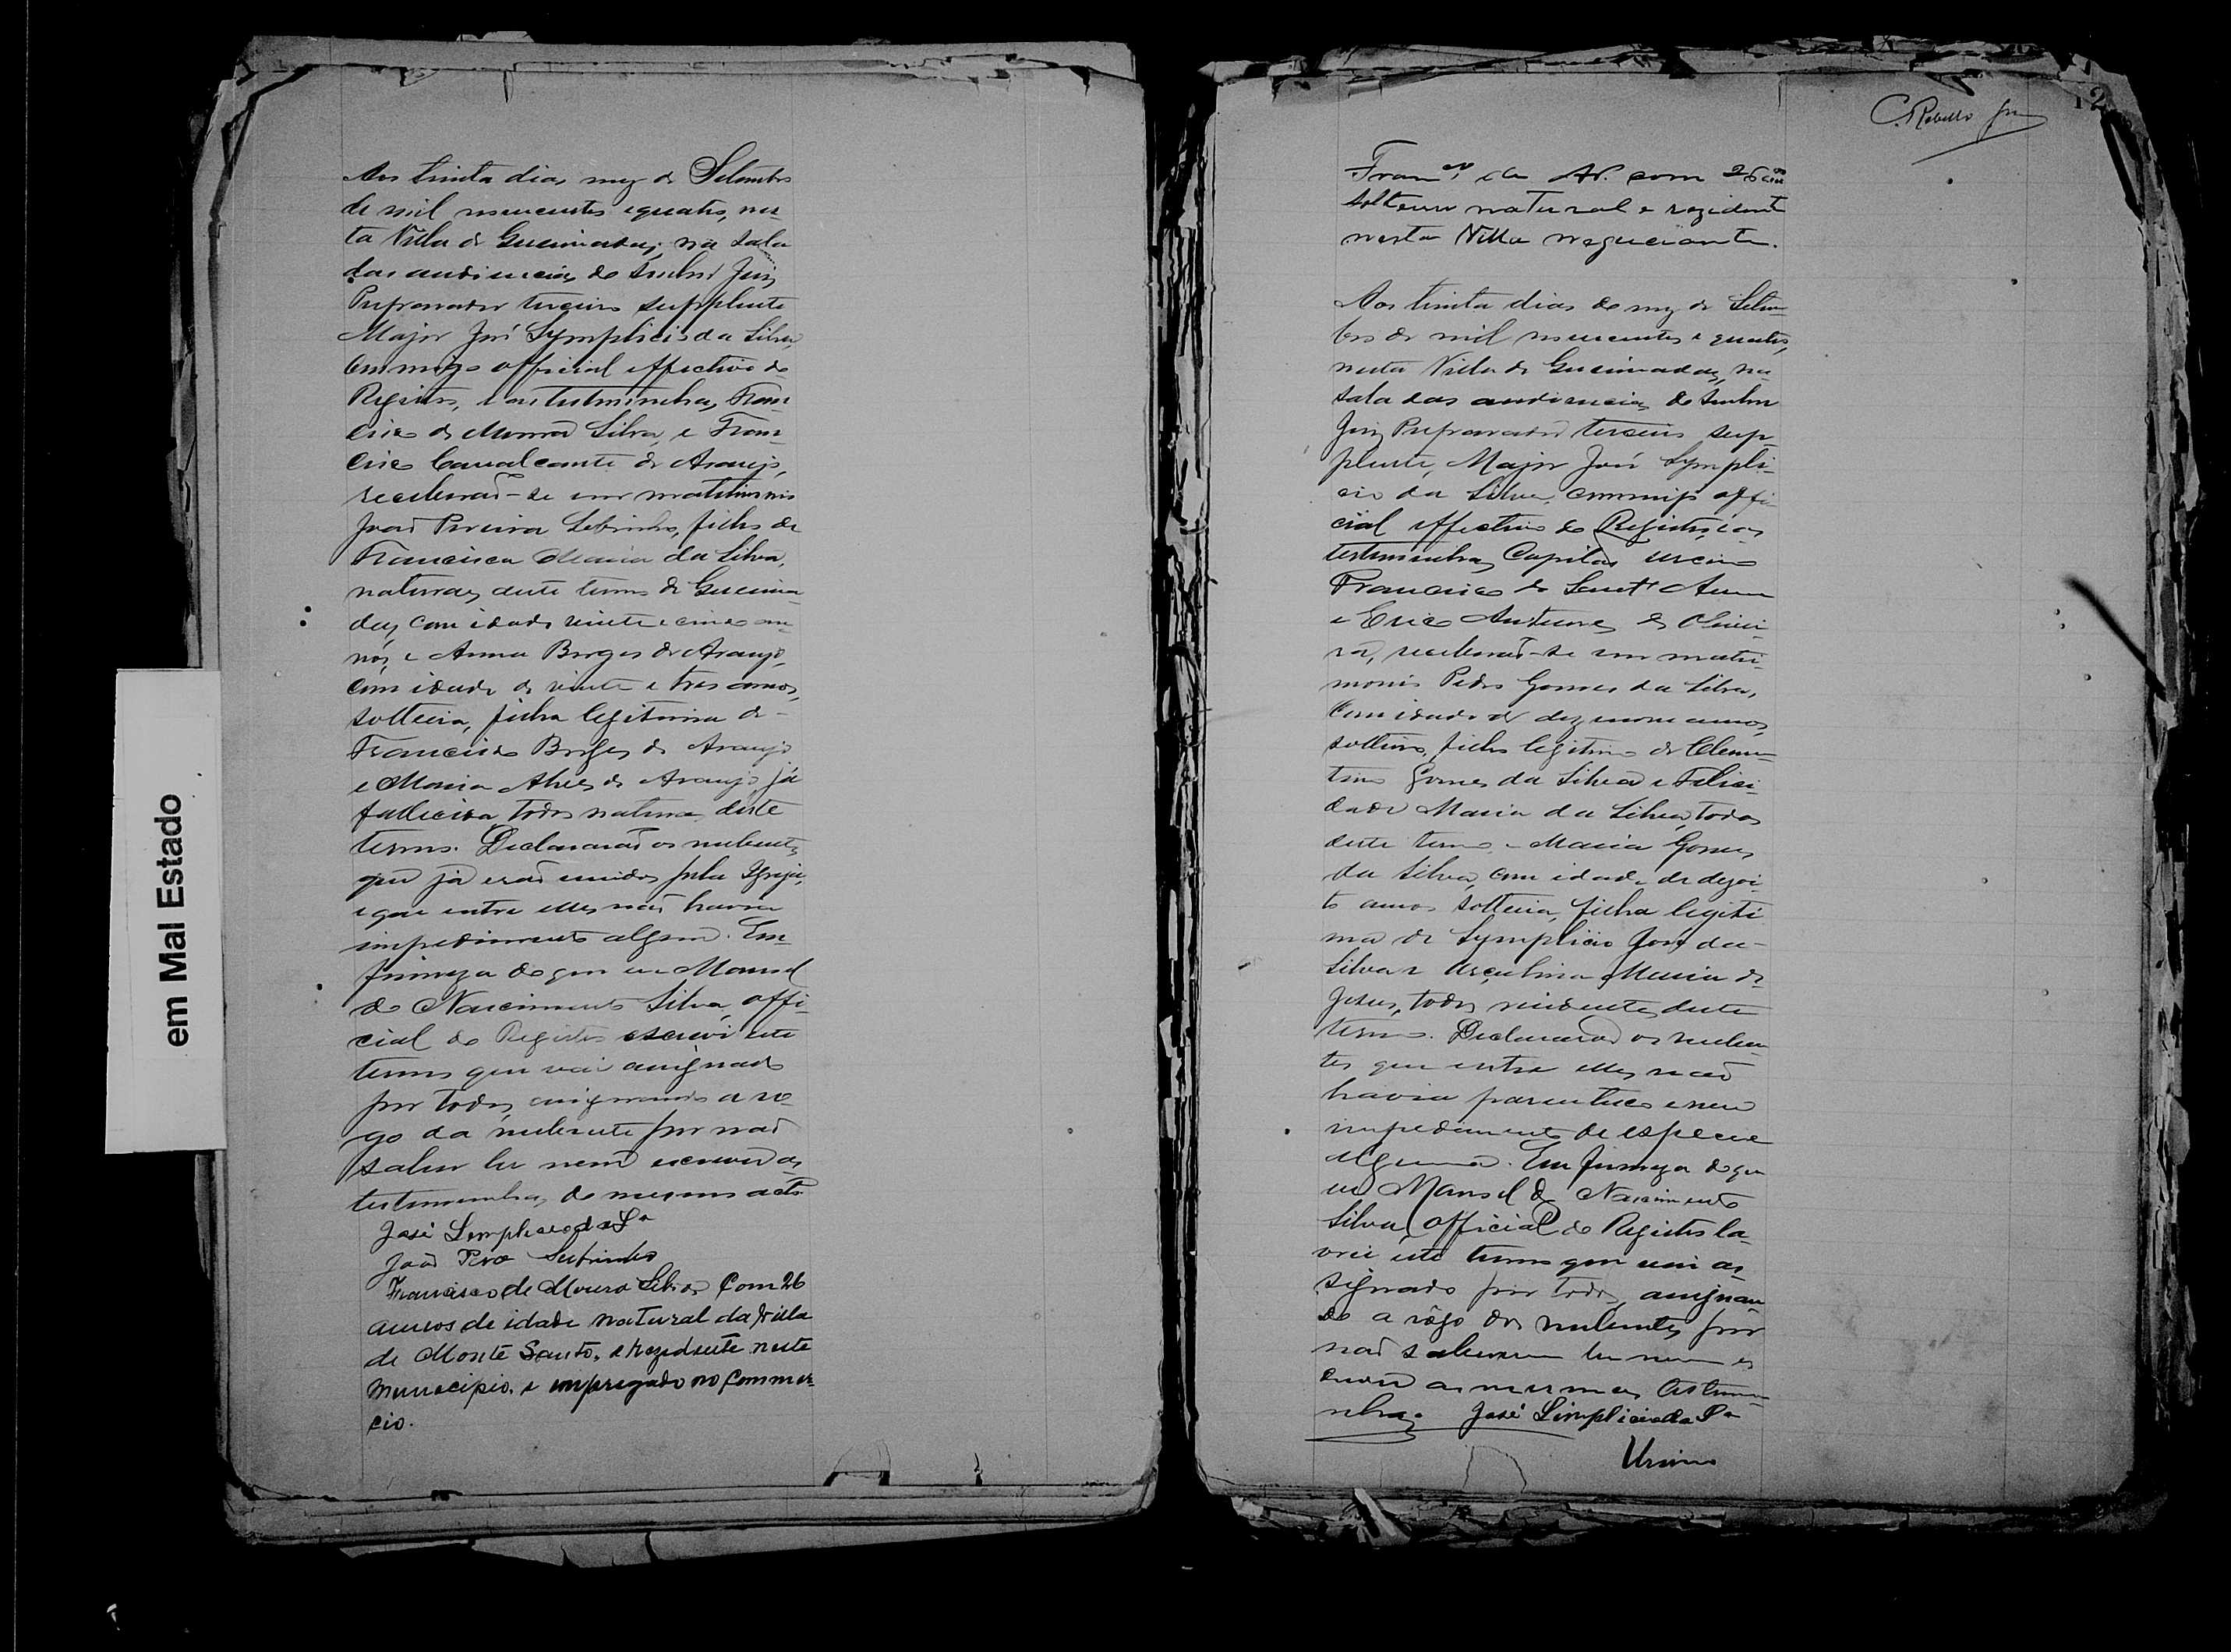 em Mal Estado
Aos trinta dias mez de Setembro
de mil novecentos e quatro, nes-
ta Villa de Queimadas, na sala
das audiencias do Senhor Juiz
Preparador terceiro supplente
Major José Symplicio da Silva,
commigo official effectivo do
Registro, e as testimunhas, Fran-
cisco de Moura Silva, e Fran-
cisco Cavalcante de Araujo,
receberaõ-se em matrimonio
Joaõ Pereira Sobrinho, filho de
Francisca Maria da Silva,
naturaes deste termo de Queima-
das, com idade vinte e cinco an-
nos, e Anna Borges de Araujo,
com idade de vinte e tres annos,
solteira, filha legitima de
Francisco Borges de Araujo
e Maria Alves de Araujo, já
fallecida, todos naturaes deste
termo. Declararaõ os nubentes
que já eraõ unidos pela Igreja,
e que entre elles naõ havia
impedimento algum. Em
firmeza do que eu Manoel
do Nascimento Silva, offi-
cial do Registro escrevi este
termo que vai assignado
por todos, assignando a ro-
go da nubente por naõ
saber ler nem escrever as
testimunhas do mesmo acto
José Simplicio da Sª
Joaõ Perª Sobrinho
Francisco de Moura Silva Com 26
annos de idade natural da Villa
de Monte Santo, e rezidente neste
Municipio, e empregado no Commer-
cio.
C. Rebello Jnr
12
Franco, C. de Ar. com 26 ans
solteiro natural e rezidente
nesta Villa negociante.
Aos trinta dias do mez de Setem-
bro de mil novecentos e quatro,
nesta Villa de Queimadas, na
sala das audiencias do Senhor
Juiz Preparador terceiro sup-
plente, Major José Sympli-
cio da Silva, commigo offi-
cial effectivo do Registro, e as
testimunhas, Capitaõ Urcino
Francisco de Sant'Anna
e Erico Antunes de Olivei-
ra, receberaõ-se em matri-
monio Pedro Gomes da Silva,
com idade de dezenove annos,
solteiro, filho legitimo de Clemen-
tino Gomes da Silva e Felici-
dade Maria da Silva, todos
deste termo e Maria Gomes
da Silva, com idade de dezoi-
to annos solteira, filha legiti
ma de Symplicio José da
Silva e Urçulina Maria de
Jesus, todos residentes deste
termo. Declararaõ os nuben-
tes que entre elles naõ
havia parentesco e nem
impedimento de especie
alguma. Em firmeza do que
eu Manoel do Nascimento
Silva, Official do Registro la-
vrei este termo que vai as-
signado por todos, assignan-
do a rôgo dos nubentes por
naõ saberem ler nem es
crever as mesmas testimu-
nhas. José Simplicio da Sª
Urcino